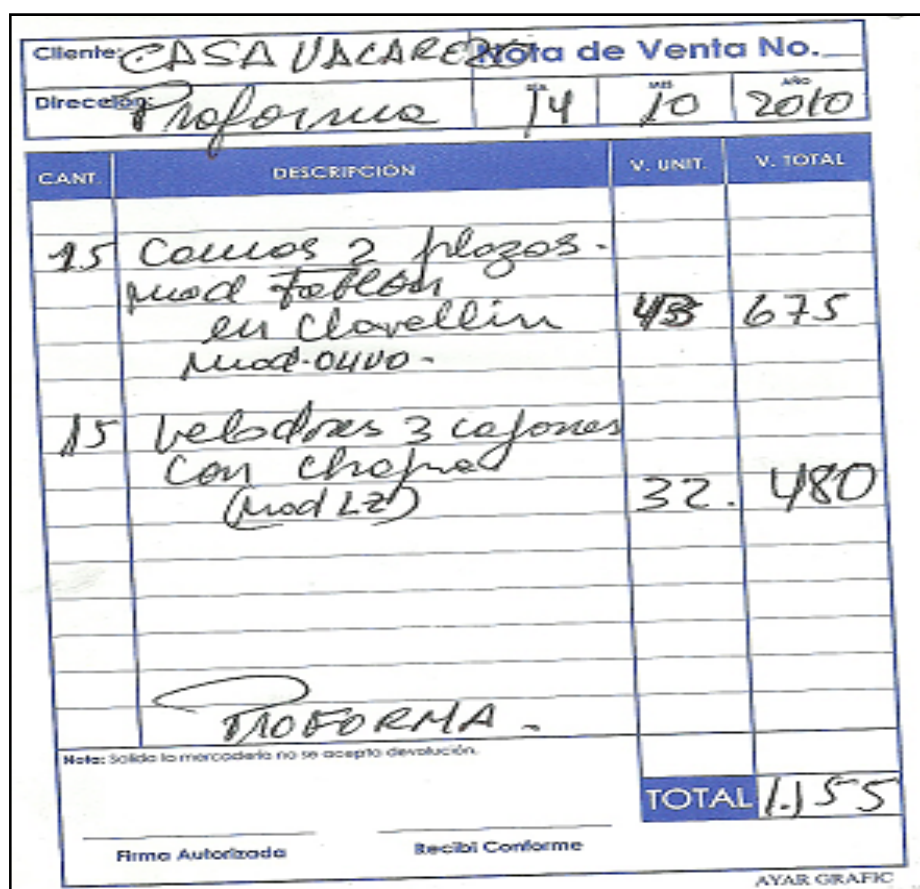 Cliente: CASA VACAREZO Nota de Venta No.
Dirección: Proforma DIA 14 MES 10 AÑO 2010
CANT. DESCRIPCIÓN V. UNIT. V. TOTAL
15 Camas 2 plazas.
mod Tablon
en Clavellin 45 675
mod-OLIVO-
15 Veladores 3 cajones
con chapa
(mod LZ) 32. 480
PROFORMA -
Nota: Salida la mercadería no se acepta devolución.
TOTAL 1.155
Firma Autorizada Recibí Conforme
AYAR GRAFIC